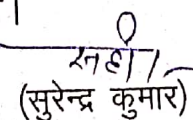 सही /
(सुरेन्द्र कुमार)